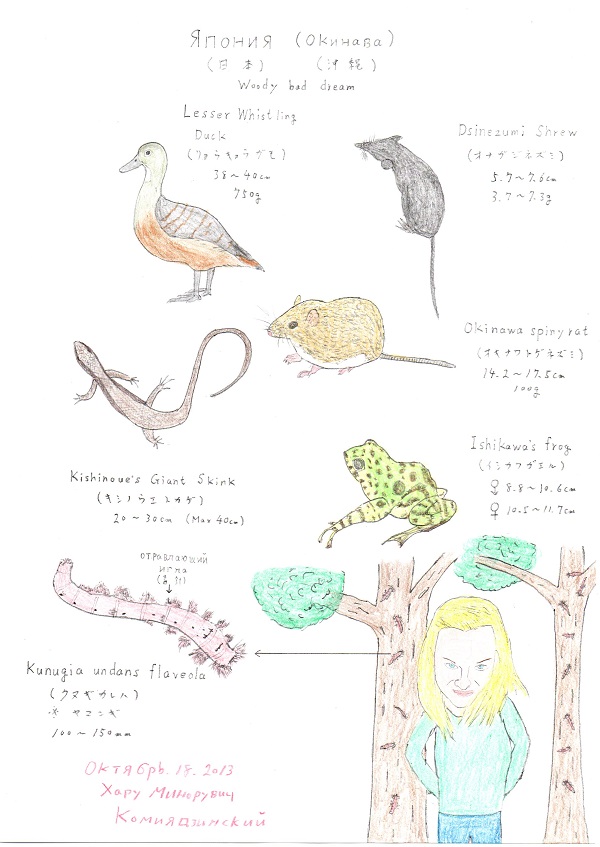 Япония (Окинава)
(日本) (沖縄)
Woody bad dream
Lesser Whistling
Duck
38～40cm
750g
Dsinezumi Shrew
(オナガジネズミ)
5.7～7.6cm
3.7～7.3g
Okinawa spiny rat
(オキナワトゲネズミ)
14.2～17.5cm
100g
Ishikawa's frog
(イシカワガエル)
♂ 8.8～10.6cm
♀ 10.5～11.7cm
Kishinoue's Giant Skink
(キシノウエトカゲ)
20～30cm (Max 40cm)
отравляющий
игла
↓
Kunugia undans flaveola
(クヌギカレハ)
※ ヤマンギ
100～150mm
Октябрь.18.2013
Хару Минорувич
Комиядзинский